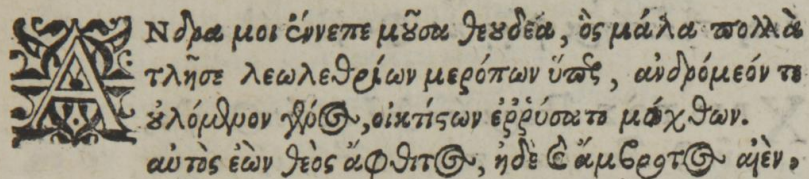 ΑΝδρα μοι ἔννεπε μοῦσα θεουδέα, ὃς μάλα πολλὰ
τλῆσε λεωλεθρίων μερόπων ὕπερ, ἀνδρόμεόν τε
οὐλόμενον γένος, οἰκτίστων ἐῤῥύσατο μόχθων.
αὐτὸς ἐὼν θεὸς ἄφθιτος, ἠδὲ καὶ ἄμβροτος αἰὲν,